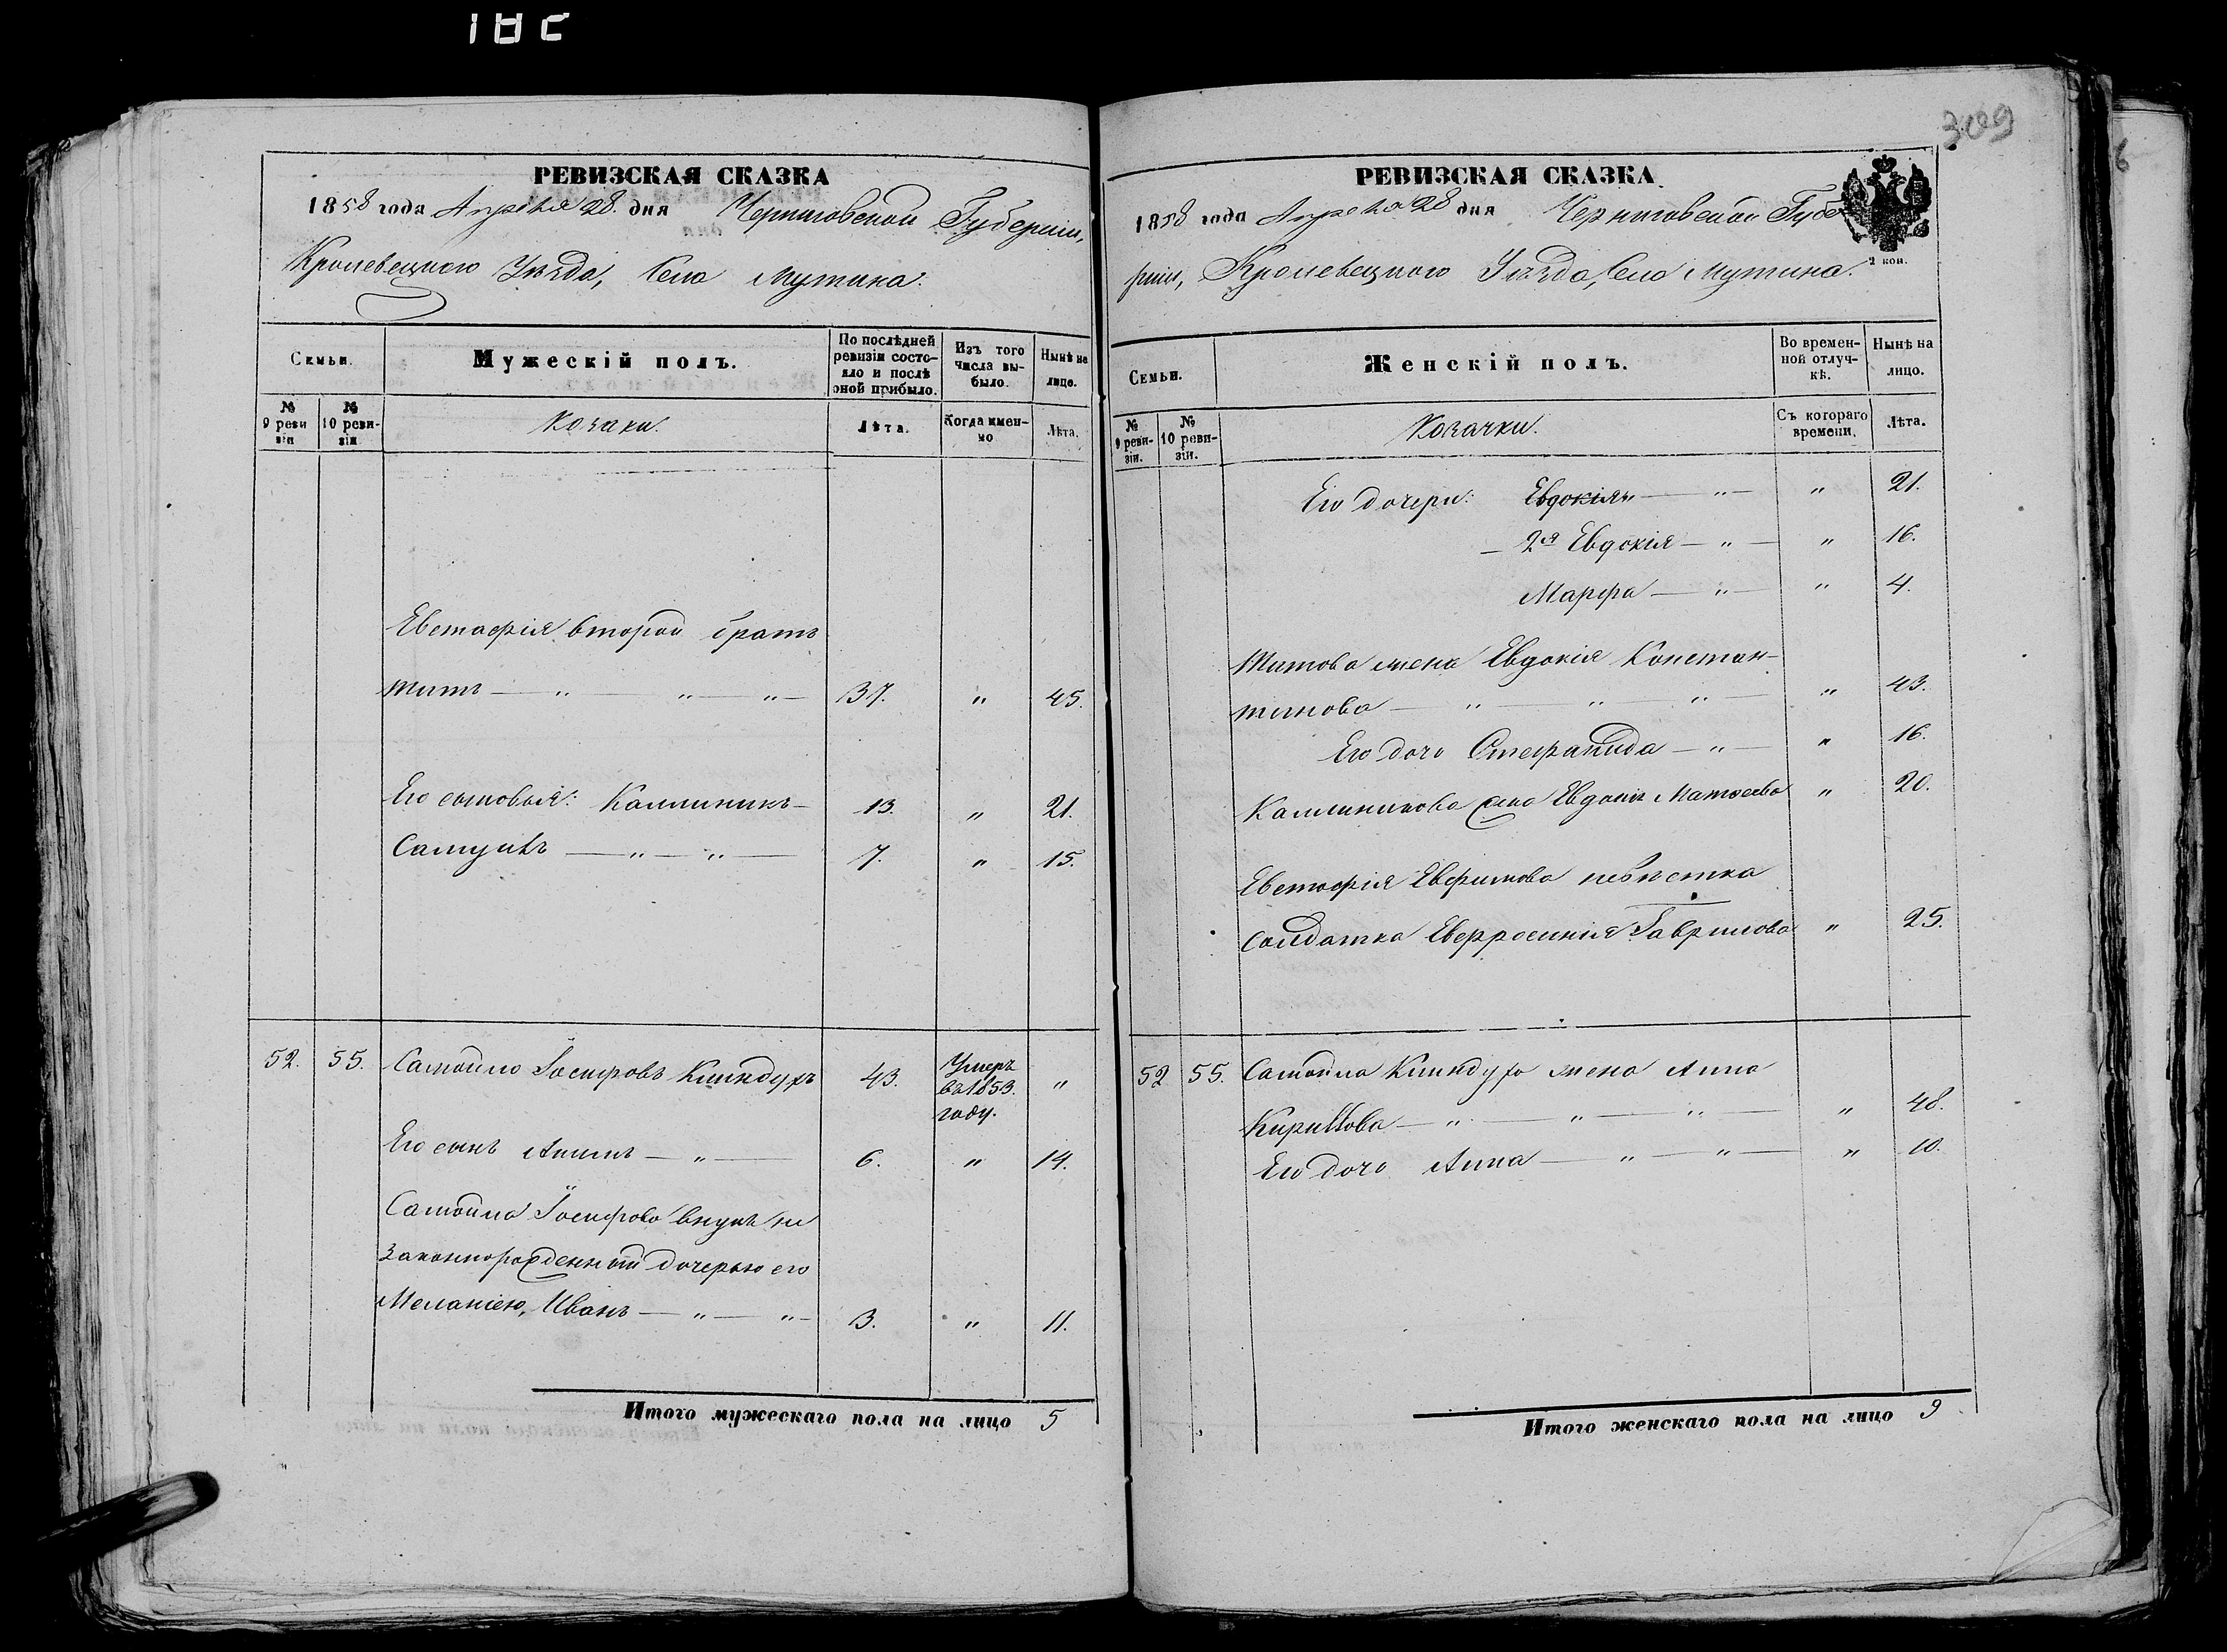 309
РЕВИЗСКАЯ СКАЗКА
1858 года Апреля 28. дня Черниговской Губерніи,
Кролевецкого Уѣзда, Села Мутина.
Семьи.
Мужескій полъ.
По послѣдней ревизіи состояло и послѣ оной прибыло.
Изъ того числа выбыло.
Нынѣ на лицо.
№ 9 ревизіи
№ 10 ревизіи.
Козаки.
Лѣта.
Когда именно
Лѣта.
Евстафія второй братъ
Титъ — „ — „ — „ — 37. „ 45.
Его сыновья: Каллиникъ — 13. „ 21.
Самуилъ — „ — „ — 7. „ 15.
52. 55. Самойло Іосифовъ Клиндухъ 43. Умеръ въ 1853. году. „
Его сынъ Акимъ — „ — 6. „ 14.
Самойла Іосифова внукъ не
законнорожденный дочерью его
Меланіею, Иванъ — „ — „ — 3. „ 11.
Итого мужескаго пола на лицо 5
РЕВИЗСКАЯ СКАЗКА
1858 года Апреля 28 дня Черниговской Губе
рніи, Кролевецкого Уѣзда, Села Мутина.
2 коп.
Семьи.
Женскій полъ.
Во временной отлучкѣ.
Нынѣ на лицо.
№ 9 ревизіи.
№ 10 ревизіи.
Козачки.
Съ котораго времени.
Лѣта.
Его дочери: Евдокія — „ — „ 21.
— 2я Евдокія — „ — „ 16.
Марфа — „ — „ 4.
Титова жена Евдокія Констан-
тинова — „ — „ — „ — „ 43.
Его дочь Стефанида — „ — „ 16.
Каллиникова жена Евдокія Матвеева „ 20.
Евстафія Ефимова невѣстка
солдатка Евфросинія Гаврилова „ 25.
52 55. Самойла Клиндуха жена Анна
Кирилова — „ — „ — „ — „ 48.
Его дочь Анна — „ — „ — „ 10.
Итого женскаго пола на лицо 9